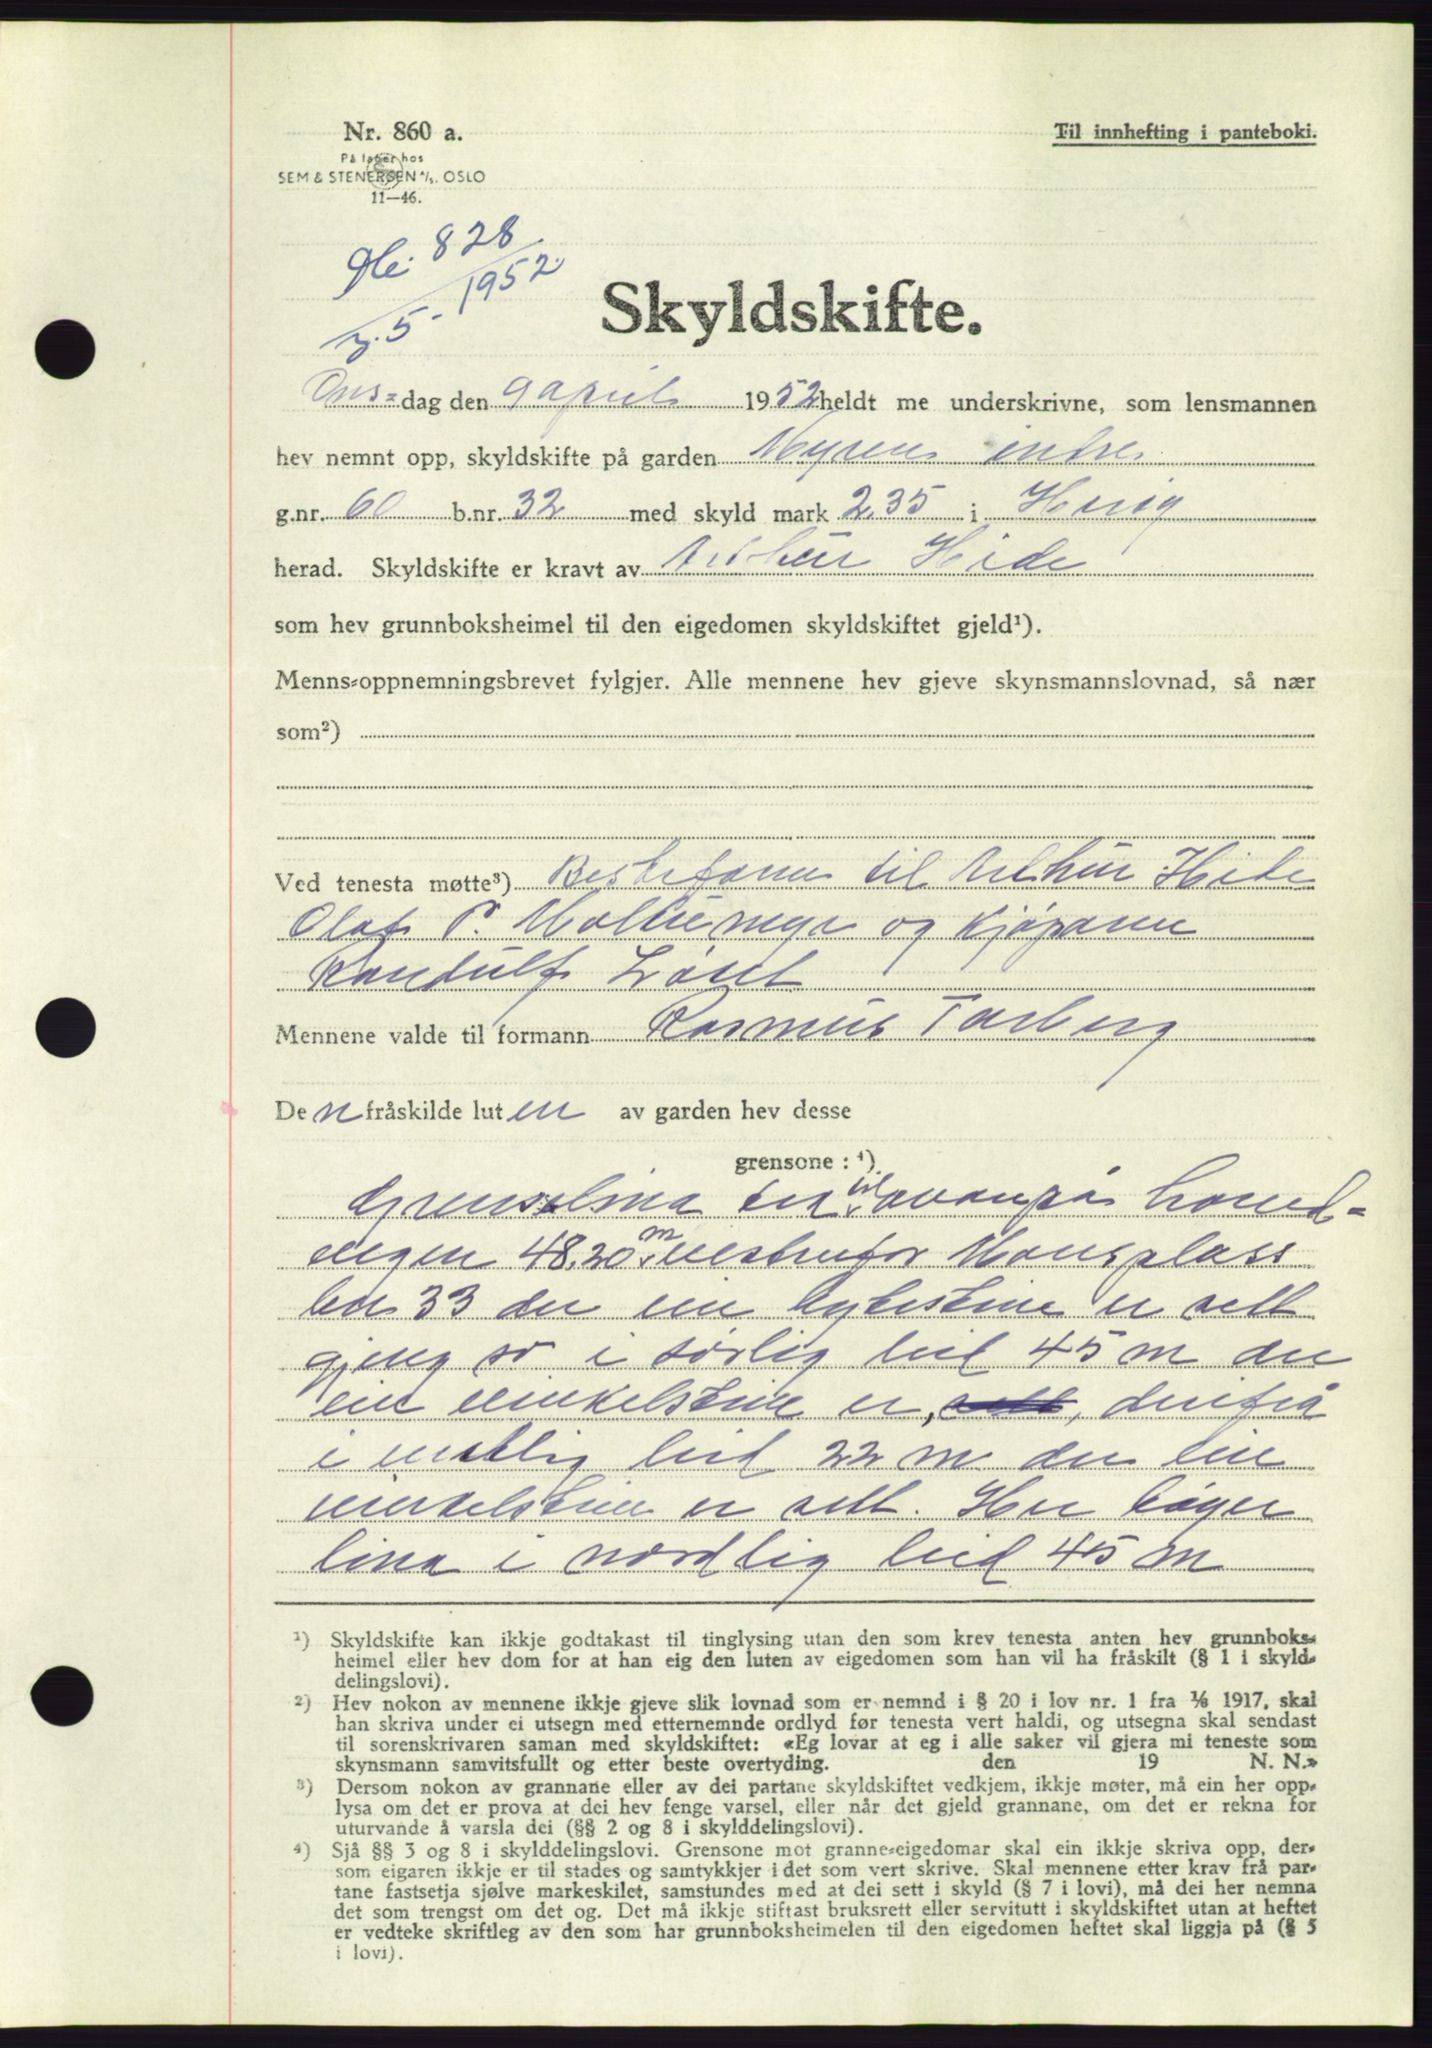 Nr. 860 a.
Til innhefting i panteboki.
På lager hos
SEM & STENERSEN A/S, OSLO
11—46.
828
5/5 - 1952
Skyldskifte.
Ons=dag den 9 april 1952 heldt me underskrivne, som lensmannen
hev nemnt opp, skyldskifte på garden Myren indre
g.nr. 60 b.nr. 32 med skyld mark 2,35 i Herøy
herad. Skyldskifte er kravt av Arthur Hide
som hev grunnboksheimel til den eigedomen skyldskiftet gjeld¹).
Menns=oppnemningsbrevet fylgjer. Alle mennene hev gjeve skynsmannslovnad, så nær
som²)
Ved tenesta møtte³) Bestefaren til Arthur Hide
Olaf P. Moltumyr og kjøparen
Randulf Løset
Mennene valde til formann Rasmus Tarberg
Den fråskilde luten av garden hev desse
grensone :⁴)
Grenselina tek til ovanpå hoved=
vegen 48,20 m vestanfor Monsplass
bnr 33 der ein bytestein er sett
gjeng so i sørlig leid 45 m der
ein vinkelstein er, sett, derifrå
i vestlig leid 22 m der ein
vinkelstein er sett. Her bøyer
lina i nordlig leid 45 m
¹) Skyldskifte kan ikkje godtakast til tinglysing utan den som krev tenesta anten hev grunnboks=
heimel eller hev dom for at han eig den luten av eigedomen som han vil ha fråskilt (§ 1 i skyld=
delingslovi).
²) Hev nokon av mennene ikkje gjeve slik lovnad som er nemnd i § 20 i lov nr. 1 fra ⅛ 1917, skal
han skriva under ei utsegn med etternemnde ordlyd før tenesta vert haldi, og utsegna skal sendast
til sorenskrivaren saman med skyldskiftet: «Eg lovar at eg i alle saker vil gjera mi teneste som
skynsmann samvitsfullt og etter beste overtyding. den 19 N. N.»
³) Dersom nokon av grannane eller av dei partane skyldskiftet vedkjem, ikkje møter, må ein her opp=
lysa om det er prova at dei hev fenge varsel, eller når det gjeld grannane, om det er rekna for
uturvande å varsla dei (§§ 2 og 8 i skylddelingslovi).
⁴) Sjå §§ 3 og 8 i skylddelingslovi. Grensone mot granne=eigedomar skal ein ikkje skriva opp, der=
som eigaren ikkje er til stades og samtykkjer i det som vert skrive. Skal mennene etter krav frå par=
tane fastsetja sjølve markeskilet, samstundes med at dei sett i skyld (§ 7 i lovi), må dei her nemna
det som trengst om det og. Det må ikkje stiftast bruksrett eller servitutt i skyldskiftet utan at heftet
er vedteke skriftleg av den som har grunnboksheimelen til den eigedomen heftet skal liggja på (§ 5
i lovi).